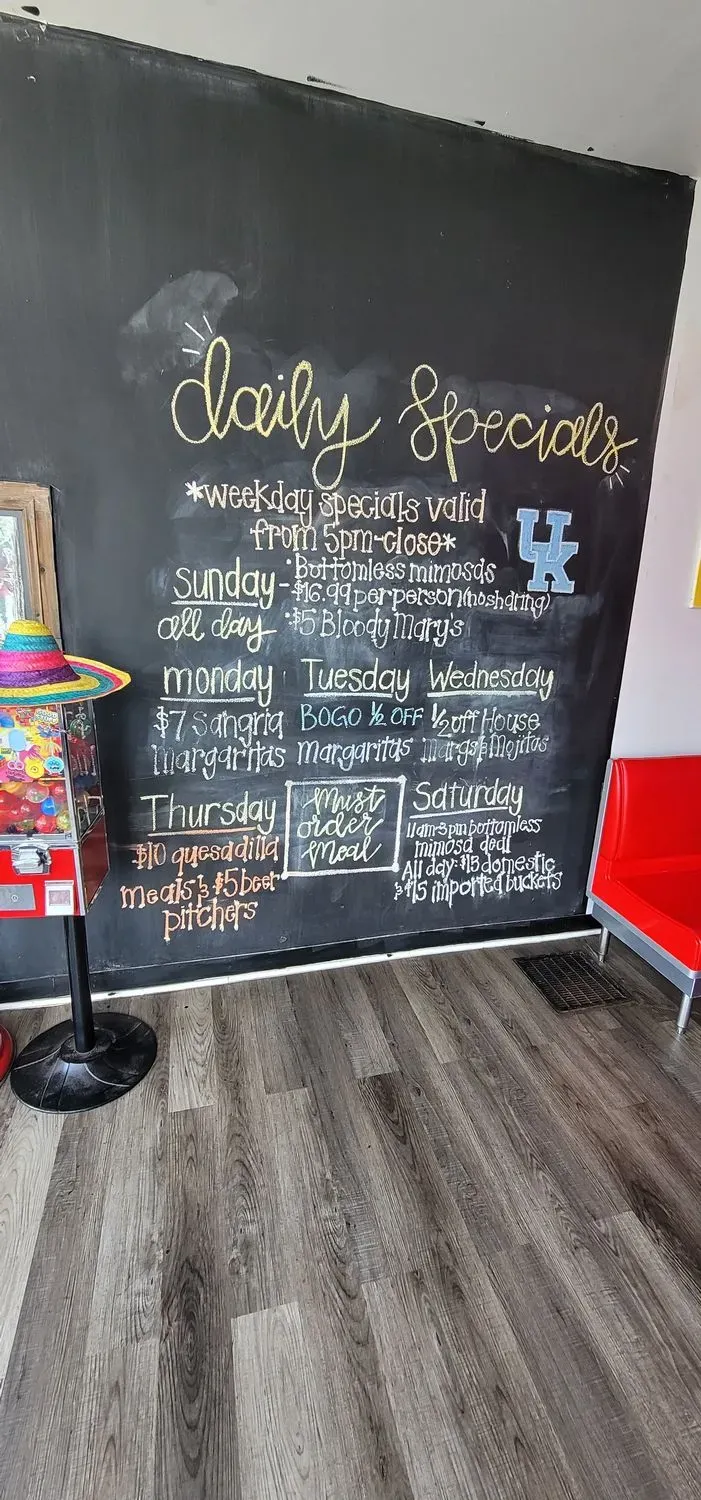 daily specials
*weekday specials valid
from 5pm-close*
UK
sunday-
all day
·Bottomless mimosas
$16.99 per person (no sharing)
·$5 Bloody Mary's
monday
$7 Sangria
margaritas
Tuesday
BOGO ½ OFF
margaritas
Wednesday
½ off House
margs & Mojitos
Thursday
$10 quesadilla
meals & $5 beer
pitchers
Must
order
meal
Saturday
11am-3pm bottomless
mimosa deal
All day: $13 domestic
& $15 imported buckets